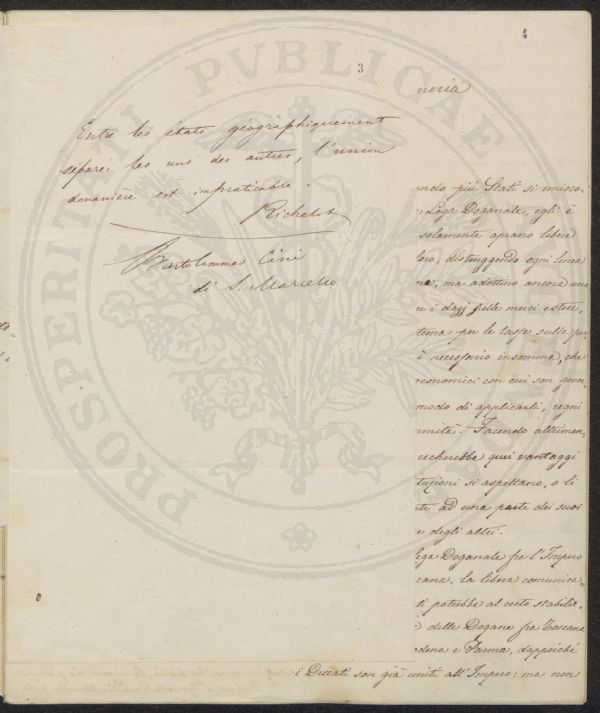 4
3
PROSPERITATI PVBLICAE
Entre les états géographiquement
séparés les uns des autres, l'union
douanière est impraticable.
Richelot
Bartolommeo Cini
di S. Marcello
moria
ando più Stati si unisco-
Lega Doganale, egli è
solamente aprano libere
loro, distruggendo ogni linea
na, ma adottino ancora una
i dazj sulle merci estere,
tema per le tasse sulle
è necessario insomma, che
economici con cui son gover-
modo di applicarli, ogni
rmità. Facendo altrimen-
recherebbe quei vantaggi
tuzioni si aspettano, o li
te ad una parte dei suoi
e degli altri.
ega Doganale fra l'Impero
cana, la libera comunica-
ti potrebbe al certo stabilir-
delle Dogane fra Toscana
dena e Parma, dappoiché
i Ducati son già uniti all'Impero: ma non